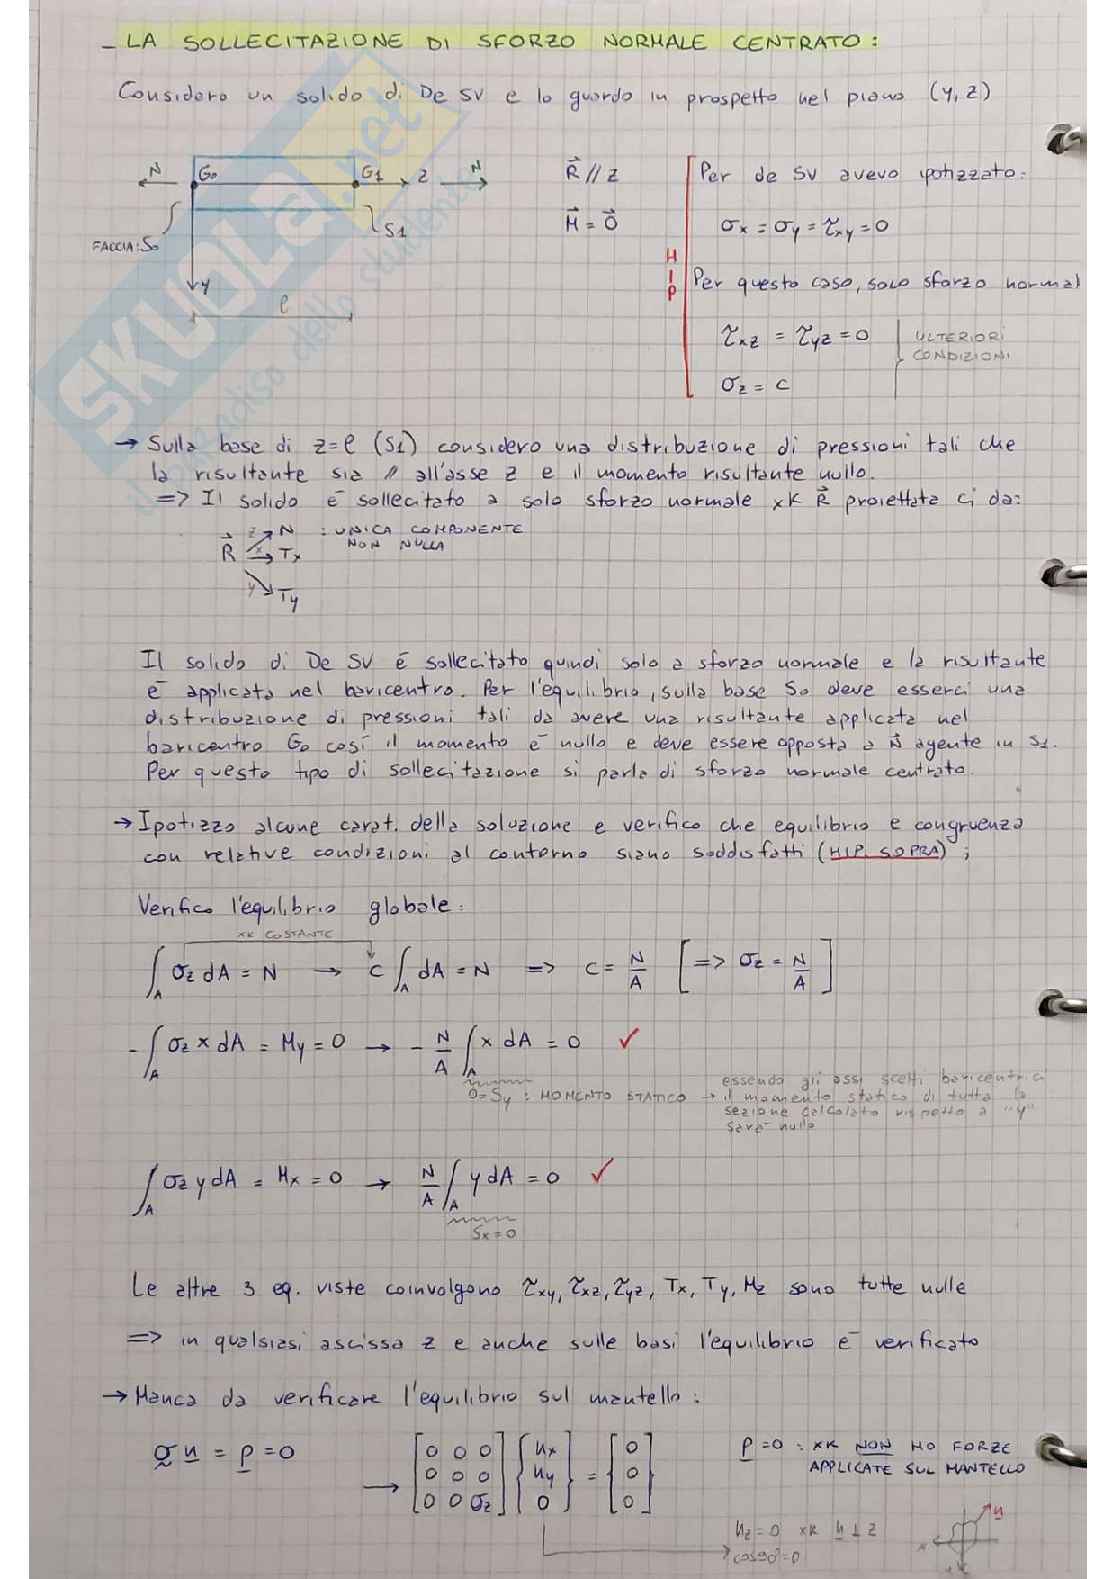 - LA SOLLECITAZIONE DI SFORZO NORMALE CENTRATO:
Considero un solido di De SV e lo guardo in prospetto nel piano (y, z)
N G₀ G1 z N
FACCIA: S₀
S1
y
ℓ
R⃗ // z
M⃗ = 0⃗
HIP
Per de SV avevo ipotizzato:
σx = σy = τxy = 0
Per questo caso, solo sforzo normal
τxz = τyz = 0
σz = c
ULTERIORI
CONDIZIONI
→ Sulla base di z=ℓ (S1) considero una distribuzione di pressioni tali che
la risultante sia // all'asse z e il momento risultante nullo.
=> Il solido è sollecitato a solo sforzo normale xk R⃗ proiettata ci dà:
R⃗ z N : UNICA COMPONENTE
NON NULLA
x Tx
y Ty
Il solido di De SV è sollecitato quindi solo a sforzo normale e la risultante
è applicata nel baricentro. Per l'equilibrio, sulla base S₀ deve esserci una
distribuzione di pressioni tali da avere una risultante applicata nel
baricentro G₀ così il momento è nullo e deve essere opposta a N⃗ agente in S1.
Per questo tipo di sollecitazione si parla di sforzo normale centrato.
→ Ipotizzo alcune carat. della soluzione e verifico che equilibrio e congruenza
con relative condizioni al contorno siano soddisfatti (HIP. SOPRA) ;
Verifico l'equilibrio globale:
xk COSTANTE
∫A σz dA = N → C ∫A dA = N => C = N/A [=> σz = N/A]
-∫A σz x dA = My = 0 → - N/A ∫A x dA = 0 ✓
0=Sy : MOMENTO STATICO → essendo gli assi scelti baricentrici
il momento statico di tutta la
sezione calcolato rispetto a "y"
sarà nullo
∫A σz y dA = Mx = 0 → N/A ∫A y dA = 0 ✓
Sx=0
Le altre 3 eq. viste coinvolgono τxy, τxz, τyz, Tx, Ty, Mz sono tutte nulle
=> in qualsiasi ascissa z e anche sulle basi l'equilibrio è verificato
→ Manca da verificare l'equilibrio sul mantello:
σ n = p = 0
→ [0 0 0; 0 0 0; 0 0 σz] {nx; ny; 0} = [0; 0; 0]
p=0 : xk NON HO FORZE
APPLICATE SUL MANTELLO
nz=0 xk n ⊥ z
cos90°=0
n
x
y
SKUOLA.net